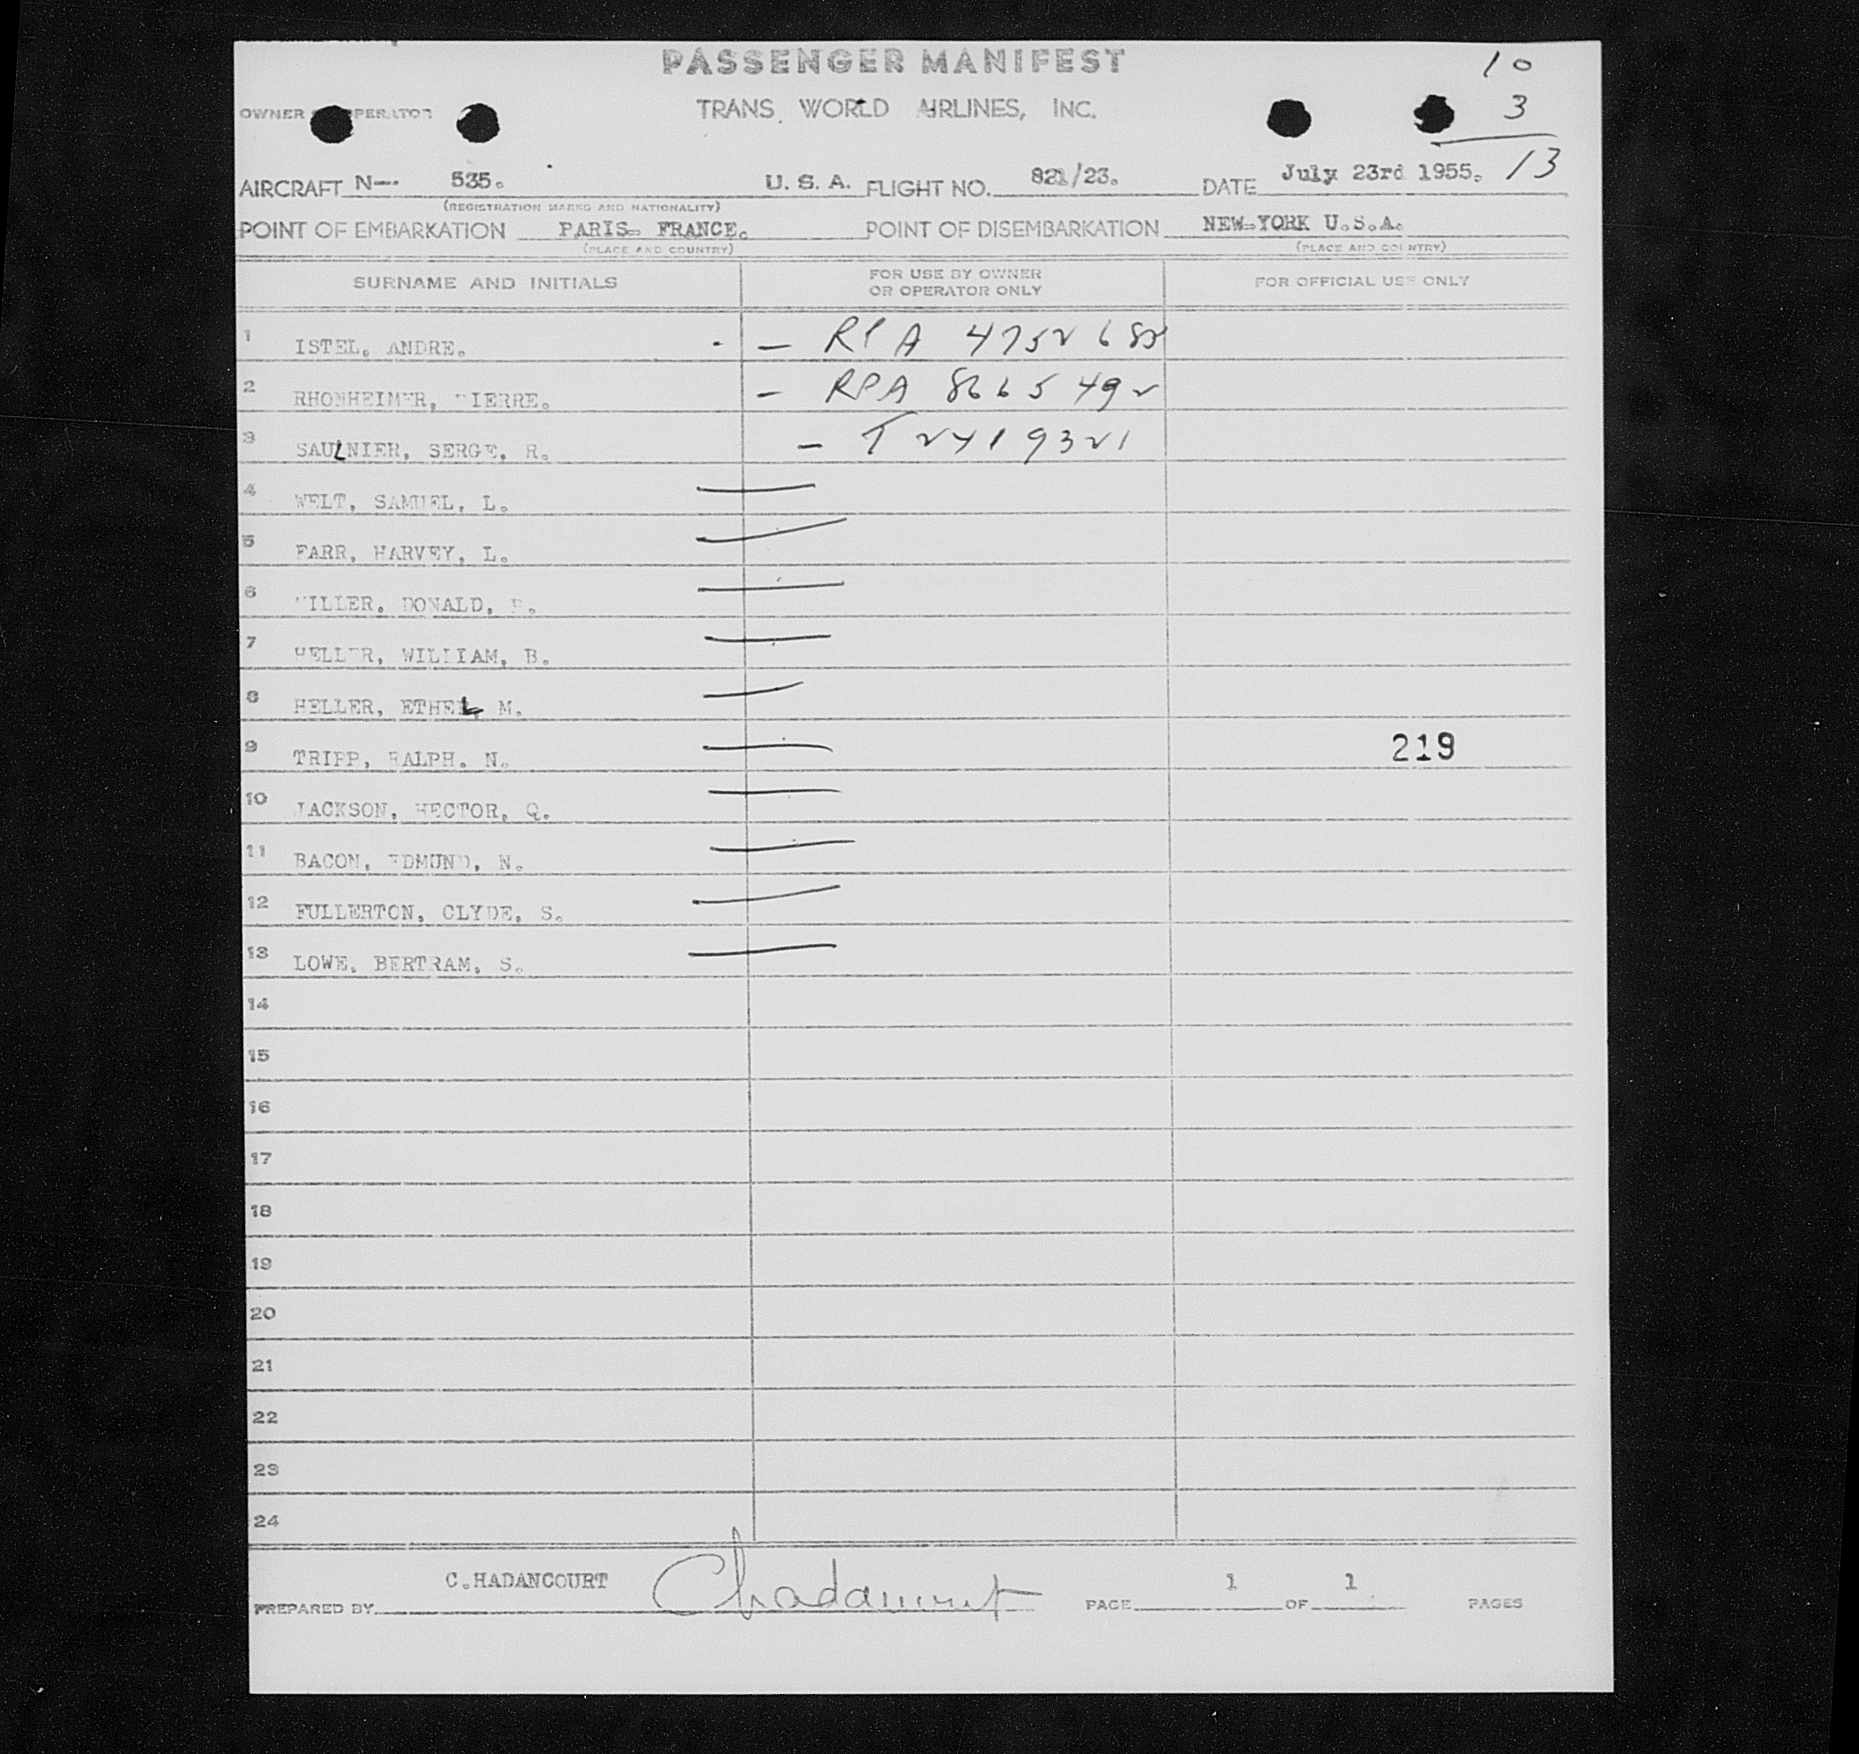 PASSENGER MANIFEST
10
OWNER TRANS WORLD AIRLINES, INC.
3
13
AIRCRAFT N--. 535. U. S. A. FLIGHT NO. 821/23. DATE July 23rd 1955.
(REGISTRATION MARKS AND NATIONALITY)
POINT OF EMBARKATION PARIS- FRANCE. POINT OF DISEMBARKATION NEW-YORK U.S.A.
(PLACE AND COUNTRY) (PLACE AND COUNTRY)
SURNAME AND INITIALS FOR USE BY OWNER OR OPERATOR ONLY FOR OFFICIAL USE ONLY
1 ISTEL. ANDRE. - RPA
2 RHONHEIMER, PIERRE. - RPA 8665492
3 SAULNIER, SERGE, R. - T2419321
4 WELT, SAMUEL, L.
5 FARR, HARVEY, L.
6 MILLER. DONALD,
7 HELLER, WILLIAM, B.
8 HELLER, ETHEL, M.
9 TRIPP, RALPH. N. 219
10 JACKSON, HECTOR, Q.
11 BACON, EDMUND, N.
12 FULLERTON, CLYDE, S.
13 LOWE, BERTRAM, S.
14
15
16
17
18
19
20
21
22
23
24
PREPARED BY C.HADANCOURT Chadancourt PAGE 1 OF 1 PAGES